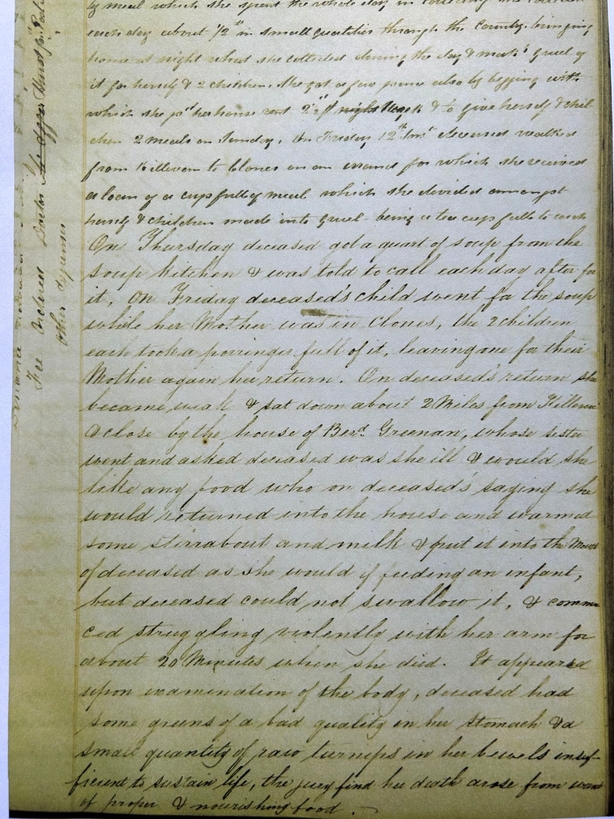 by meal which she spent the whole day in
each day about 1/2 st in small quantities through the Country bringing
home at night what she collected during the day & made gruel of
it for herself & 2 children. She got a few pence also by begging with
which she pd her house rent & to give herself & chil
dren 2 meals on Sunday. On Friday 12th inst deceased walked
from Killeevan to Clones on an errand for which she received
a loan of a cup full of meal which she divided amongst
herself & children made into gruel being a tea cup full to each
On Thursday deceased got a quart of soup from the
soup kitchen & was told to call each day after for
it, On Friday deceased's child went for the soup
while her Mother was in Clones, the 2 children
each took a porringer full of it, leaving one for their
Mother again her return. On deceased's return she
became weak & sat down about 2 Miles from Killeevan
& close by the house of Bernd. Greenan, whose sister
went and asked deceased was she ill & would she
like any food who on deceased's saying she
would returned into the house and warmed
some stirrabout and milk & put it into the Mouth
of deceased as she would if feeding an infant,
but deceased could not swallow it, & commen
ced struggling violently with her arm for
about 20 Minutes when she died. It appeared
upon examination of the body, deceased had
some greens of a bad quality in her stomach & a
small quantity of raw turnips in her bowels insuf-
ficient to sustain life, the jury find her death arose from want
of proper & nourishing food.
Fee Doctor
other expenses